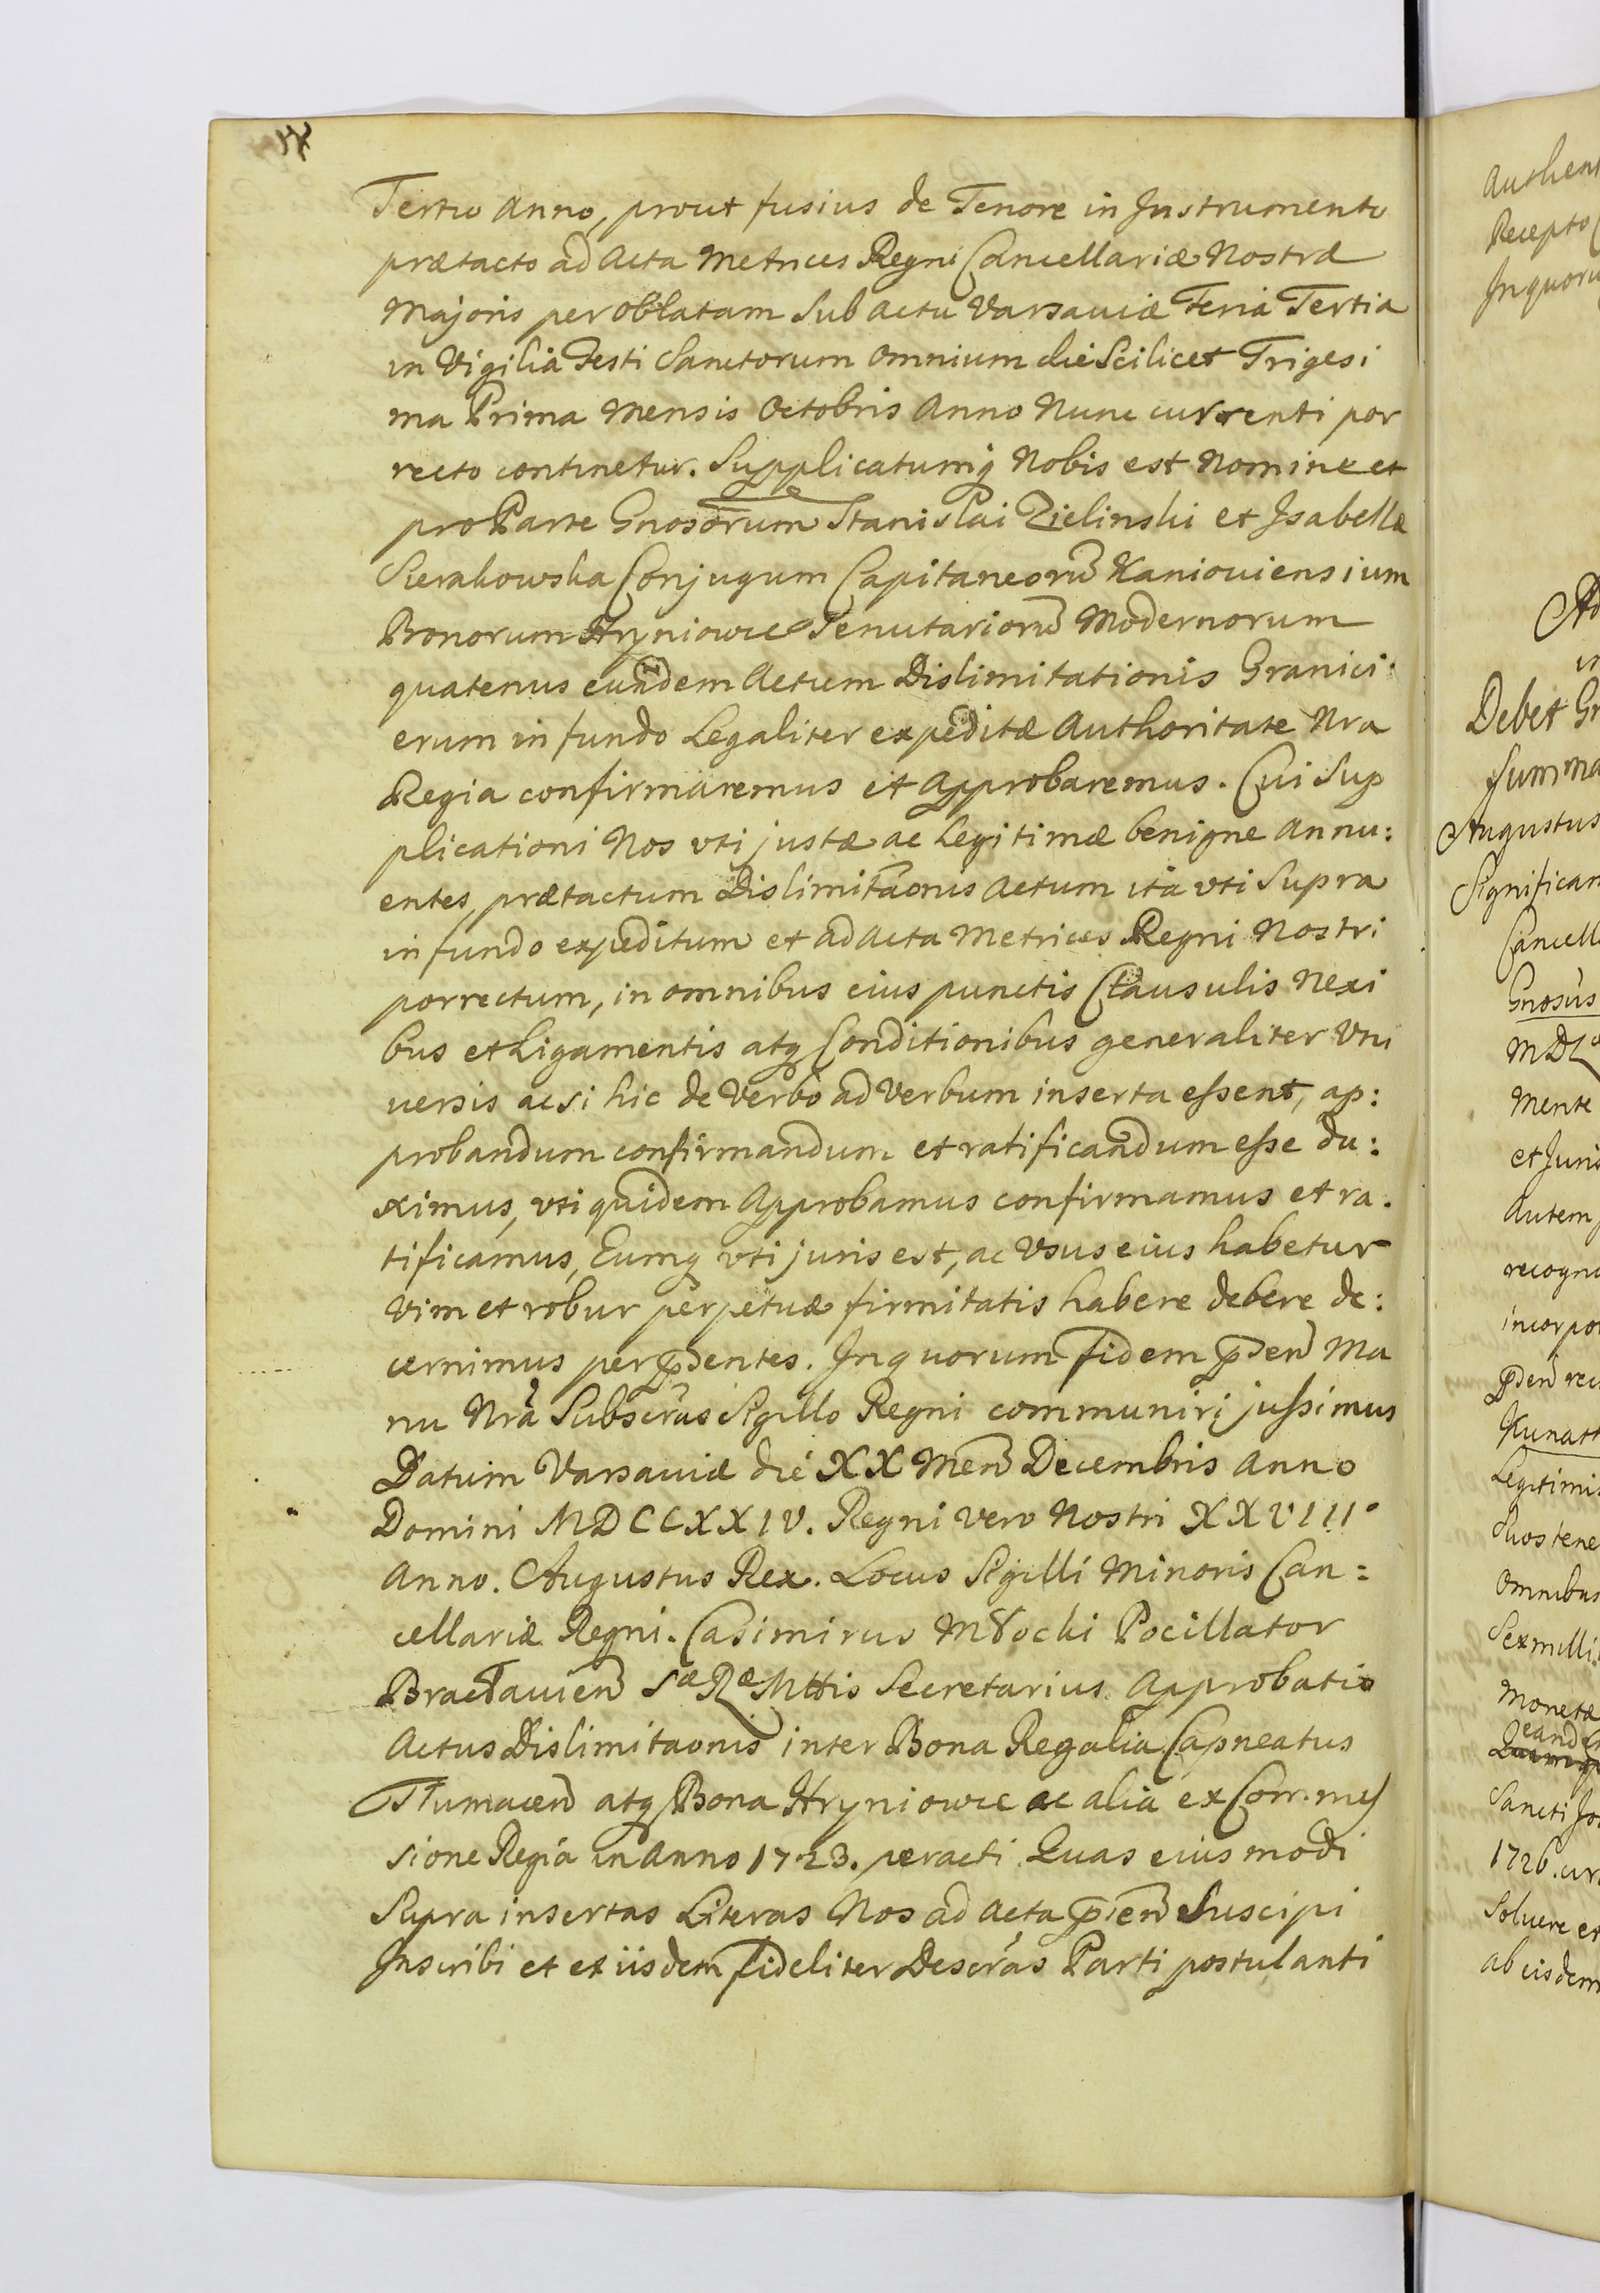 Tertio Anno, prout fusius de Tenore in Instrumento
prætacto ad Acta Metrices Regni Cancellariæ Nostræ
Majoris per oblatam sub actu Varsaviæ Feria Tertia
in Vigilia Festi Sanctorum Omnium die Scilicet Trigesi
ma Prima Mensis Octobris Anno Nunc currenti por
recto continetur. Supplicatumq Nobis est Nomine et
pro Parte Gnosorum Stanislai Zielinski et Isabellæ
Sierakowska Conjugum Capitaneorū Kaniouiensium
Bonorum Hryniowce Tenutariorū Modernorum
quatenus eundem Actum Dislimitationis Granici:
erum in fundo Legaliter expeditæ Authoritate Nra
Regia confirmaremus et Approbaremus. Cui Sup
plicationi Nos vti justæ ac Legitimæ benigne Annu:
entes, prætactum Dislimitaonis Actum ita vti Supra
in fundo expeditum et ad Acta Metrices Regni Nostri
porrectum, in omnibus eius punctis Clausulis Nexi
bus et Ligamentis atq Conditionibus generaliter Vni
uersis ac si hic de Verbo ad Verbum inserta essent, ap:
probandum confirmandum et ratificandum esse du:
ximus, vti quidem Approbamus confirmamus et ra.
tificamus, Eumq vti juris est, ac Vsus eius habetur
Vim et robur perpetuæ firmitatis habere debere de:
cernimus per pdentes. In quorum fidem pden Ma
nu Nra Subscras Sigillo Regni communiri jussimus
Datum Varsaviæ die XX Men Decembris Anno
Domini MDCCXXIV. Regni vero Nostri XXVIII°
Anno. Augustus Rex. Locus Sigilli Minoris Can=
cellariæ Regni. Casimirus Młocki Pocillator
Bractauien Sæ Ræ Mttis Secretarius. Approbatio
Actus Dislimitaonis inter Bona Regalia Capneatus
Tłumacen atq Bona Hryniowce ac alia ex Com̄mes
sione Regia in Anno 1723. peracti. Quas eiusmodi
Supra insertas Literas Nos ad Acta pden Suscipi
Inscribi et ex iisdem fideliter Descras Parti postulanti
Authen
Recepto
In quoru
Debet Gr
summa
Augustus
Significam
Cancell
Gnosus
Mente
et Juris
Autem
recogno
incorpor
pden rec
Kunatt
Legitimis
Suos tene
Omnibus
Sexmilli
Monetæ
eand
Sancti Jo
1726. cur
Soluere et
ab eisdem